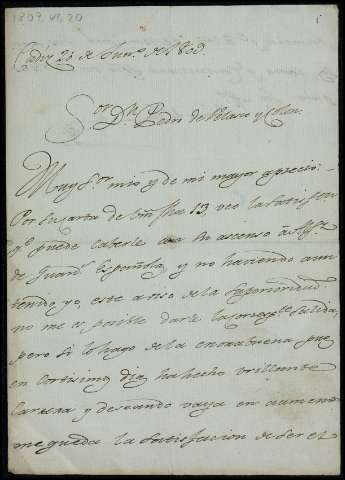 1809.VI.20
1
Cadiz 20 de Jun.º de 1809.
S.or D.n Pedro de Velasco y Colon.
Muy S.or mio y de mi mayor aprecio:
Por su carta de 13, veo la satisf.on
q.e puede caberle su ascenso
de Guard.s Española, y no haviendo aun
tenido yo, este aviso de la Superioridad
no me es posible darle la salida,
pero si lo hago de la enorabuena que
en cortisimos dias ha hecho vrillante
Carrera y deseando vaya en aumento
me queda la satisfacion de ser el